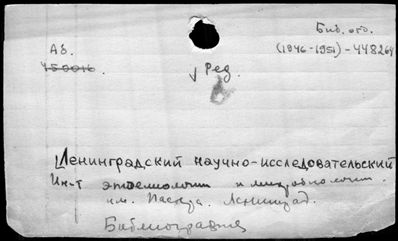 Библ. отд.
Аз. (1946-1951)-448264
450016.
√ Ред.
Ленинградский научно-исследовательский
Ин-т эпидемиологии и микробиологии
им. Пастера. Ленинград.
Библиография